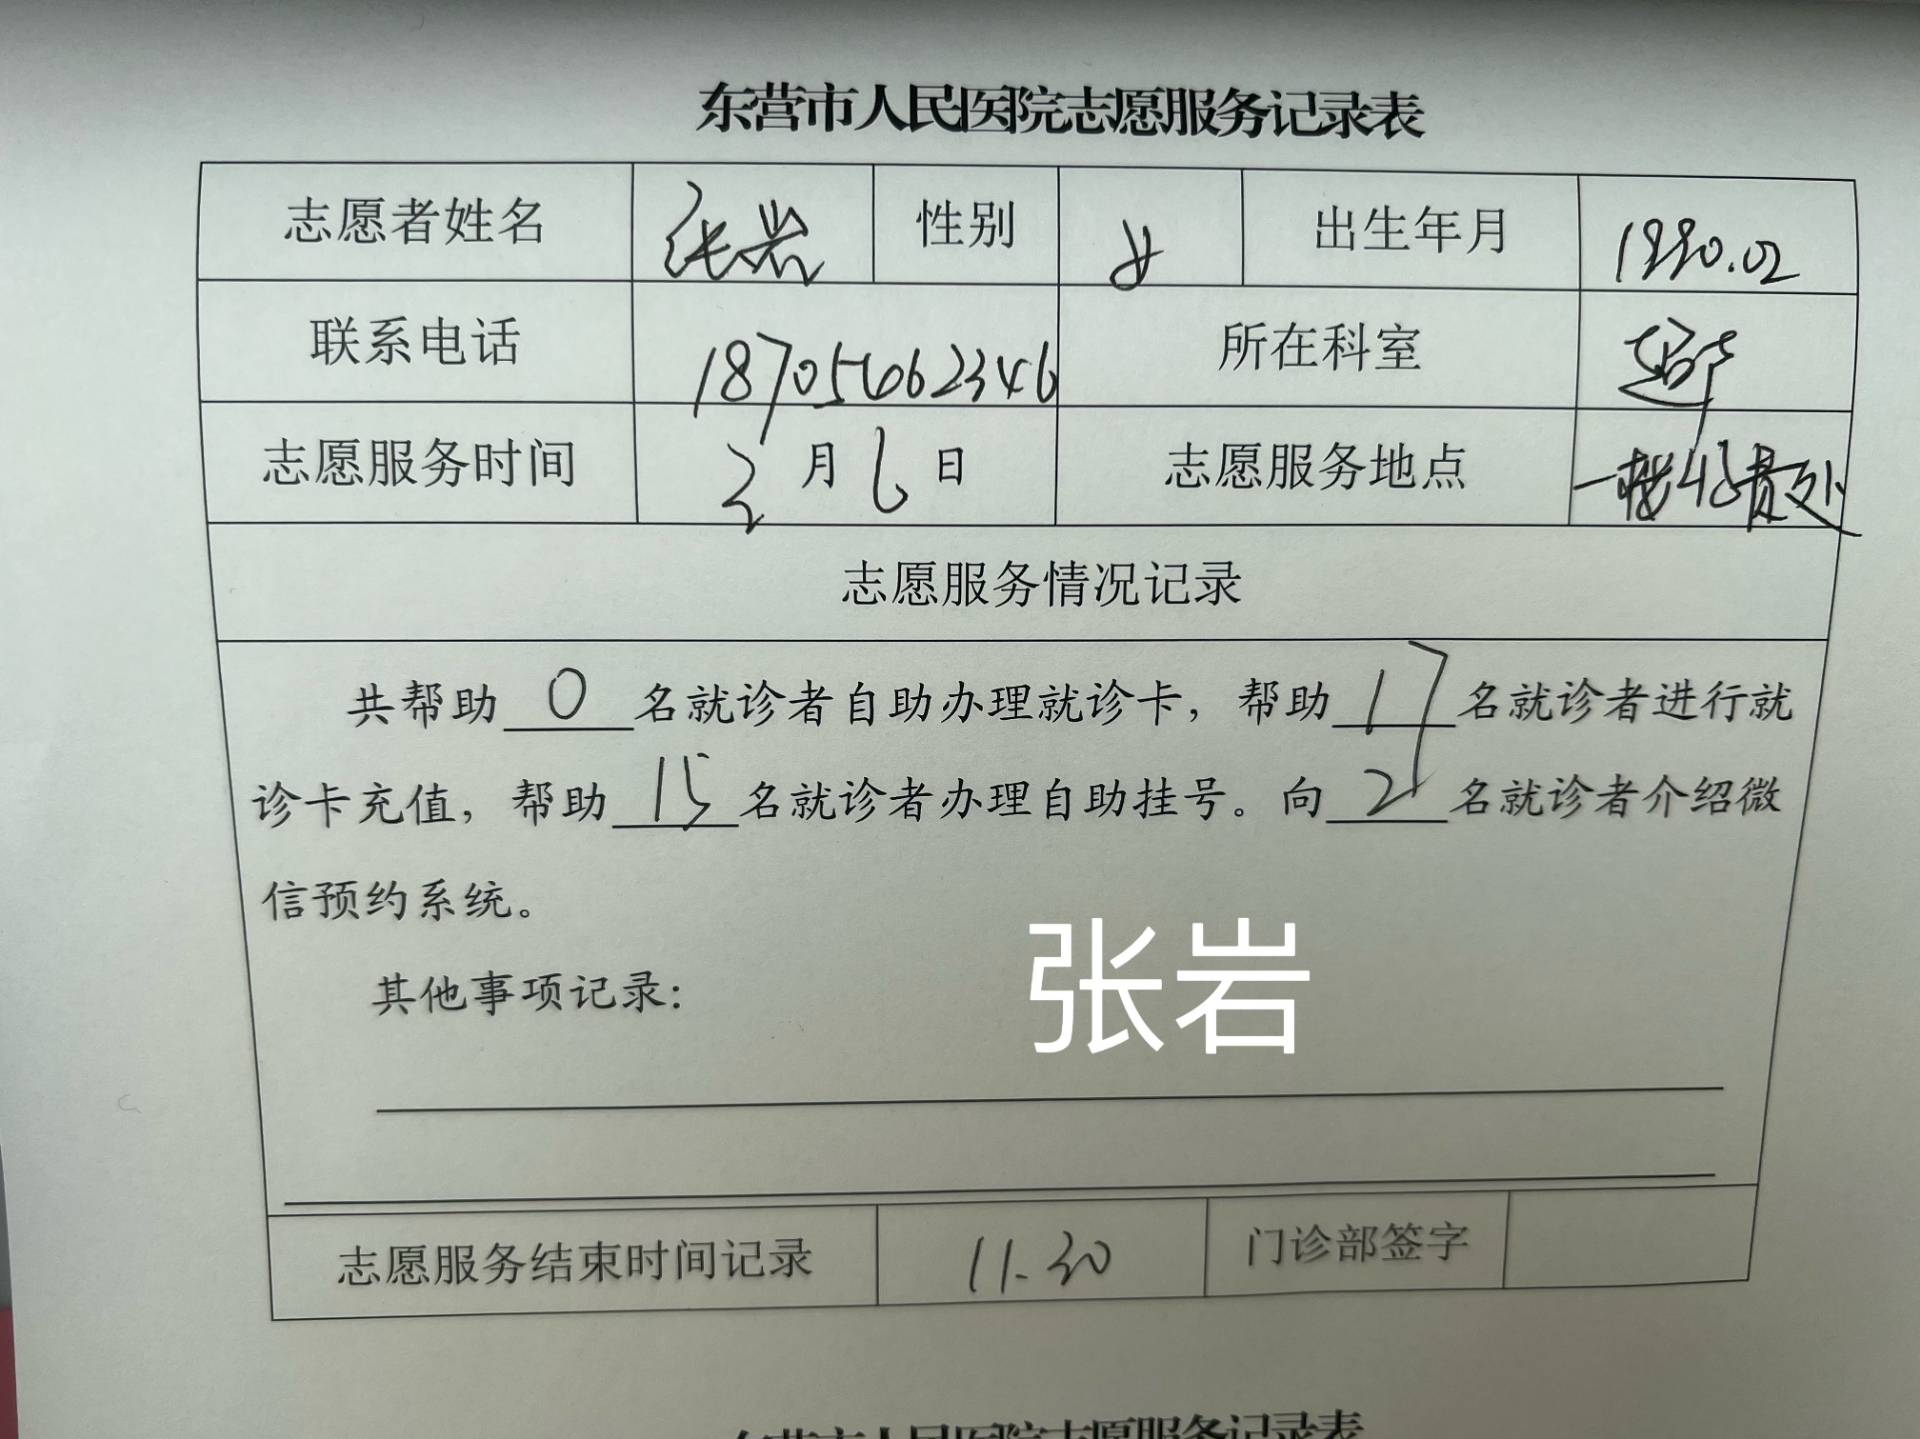 东营市人民医院志愿服务记录表
志愿者姓名 张岩 性别 女 出生年月 1990.02
联系电话 18705662346 所在科室 超声
志愿服务时间 2月6日 志愿服务地点 一楼收费处
志愿服务情况记录
共帮助 0 名就诊者自助办理就诊卡，帮助 17 名就诊者进行就
诊卡充值，帮助 15 名就诊者办理自助挂号。向 21 名就诊者介绍微
信预约系统。
其他事项记录：
张岩
志愿服务结束时间记录 11.30 门诊部签字
东营市人民医院志愿服务记录表